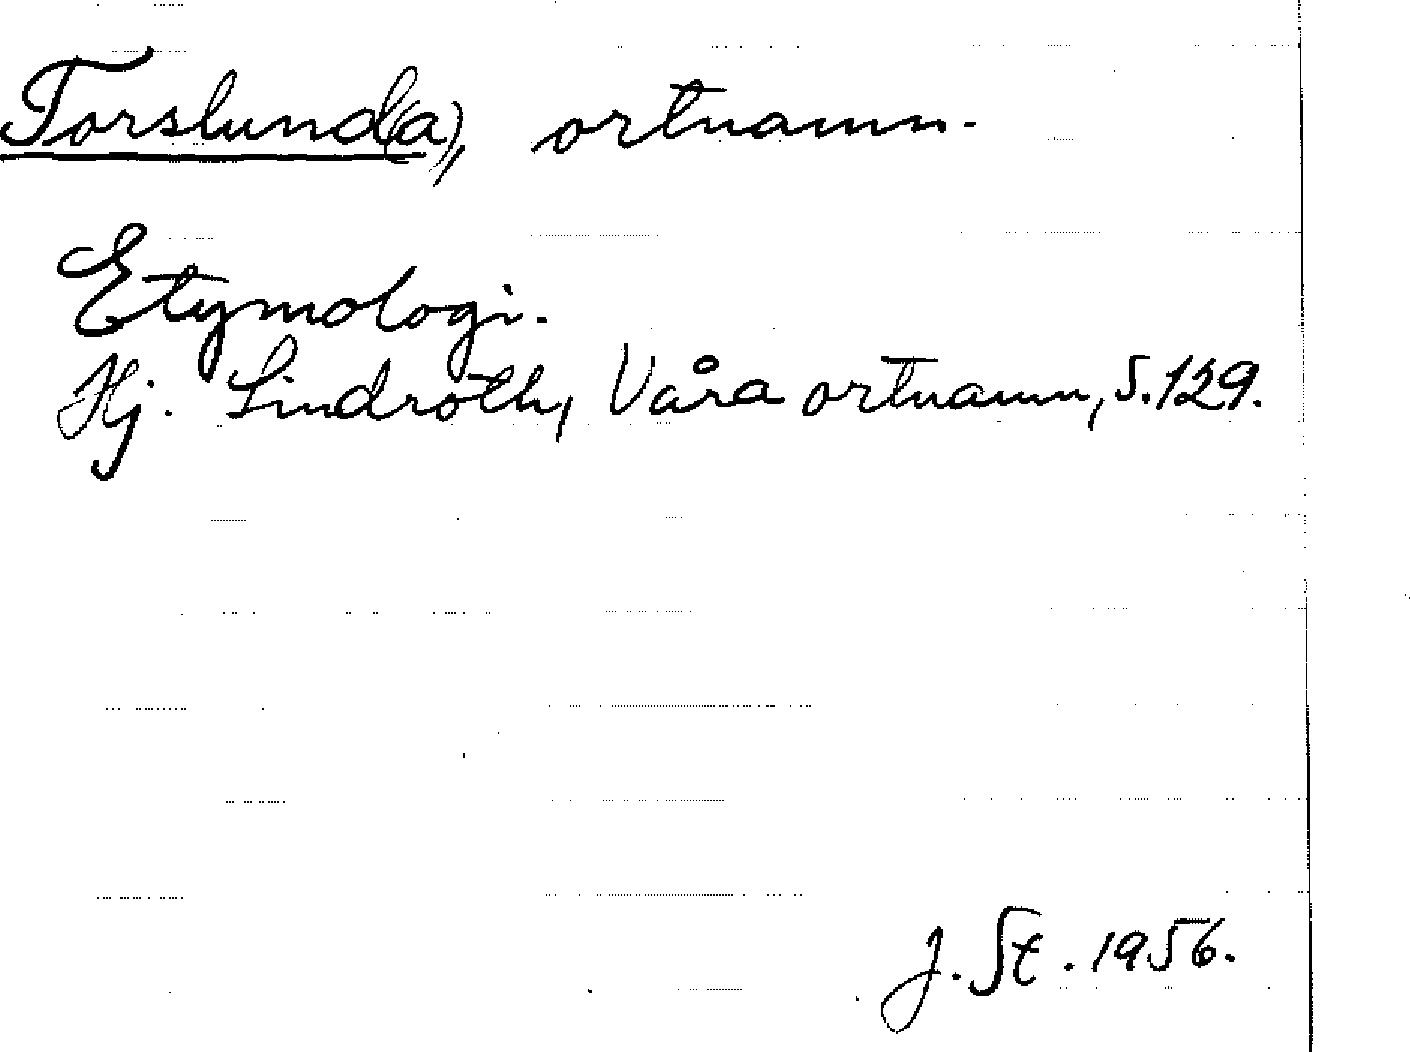 Torslund(a), ortnamn.
Etymologi.
Hj. Lindroth, Våra ortnamn, s. 129.
J. St. 1956.